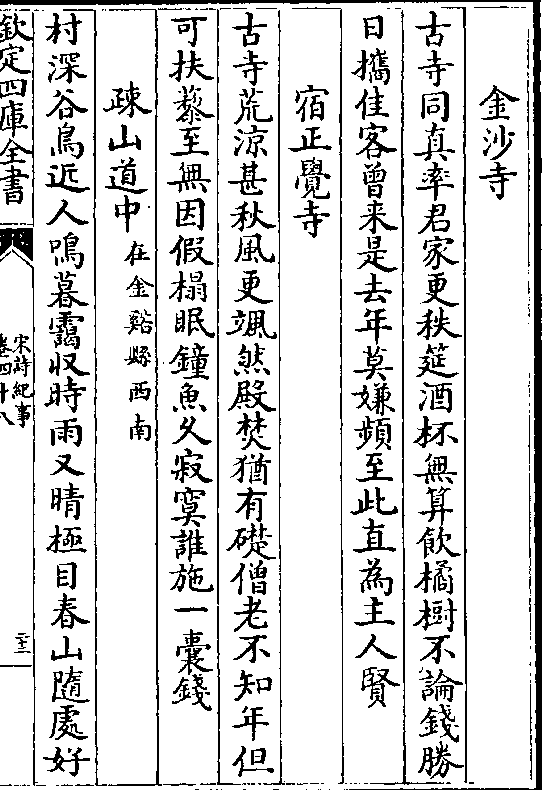 金沙寺
古寺同真率君家更秩筵酒杯無算飲橘樹不論錢勝
日攜佳客曾来是去年莫嫌頻至此直為主人賢
宿正覺寺
古寺荒凉甚秋風更颯然殿焚猶有礎僧老不知年但
可扶藜至無因假榻眠鐘魚久寂寞誰施一囊錢
疎山道中在金谿縣西南
村深谷鳥近人鳴暮靄収時雨又晴極目春山隨處好
欽定四庫全書
宋詩紀事
卷四十八